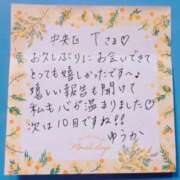 中央区 Tさま♡
お久しぶりにお会いできて
とっても嬉しかったです〜♪
嬉しい報告も聞けて
私も心が温まりました♡
次は10日ですね!!
ゆうか